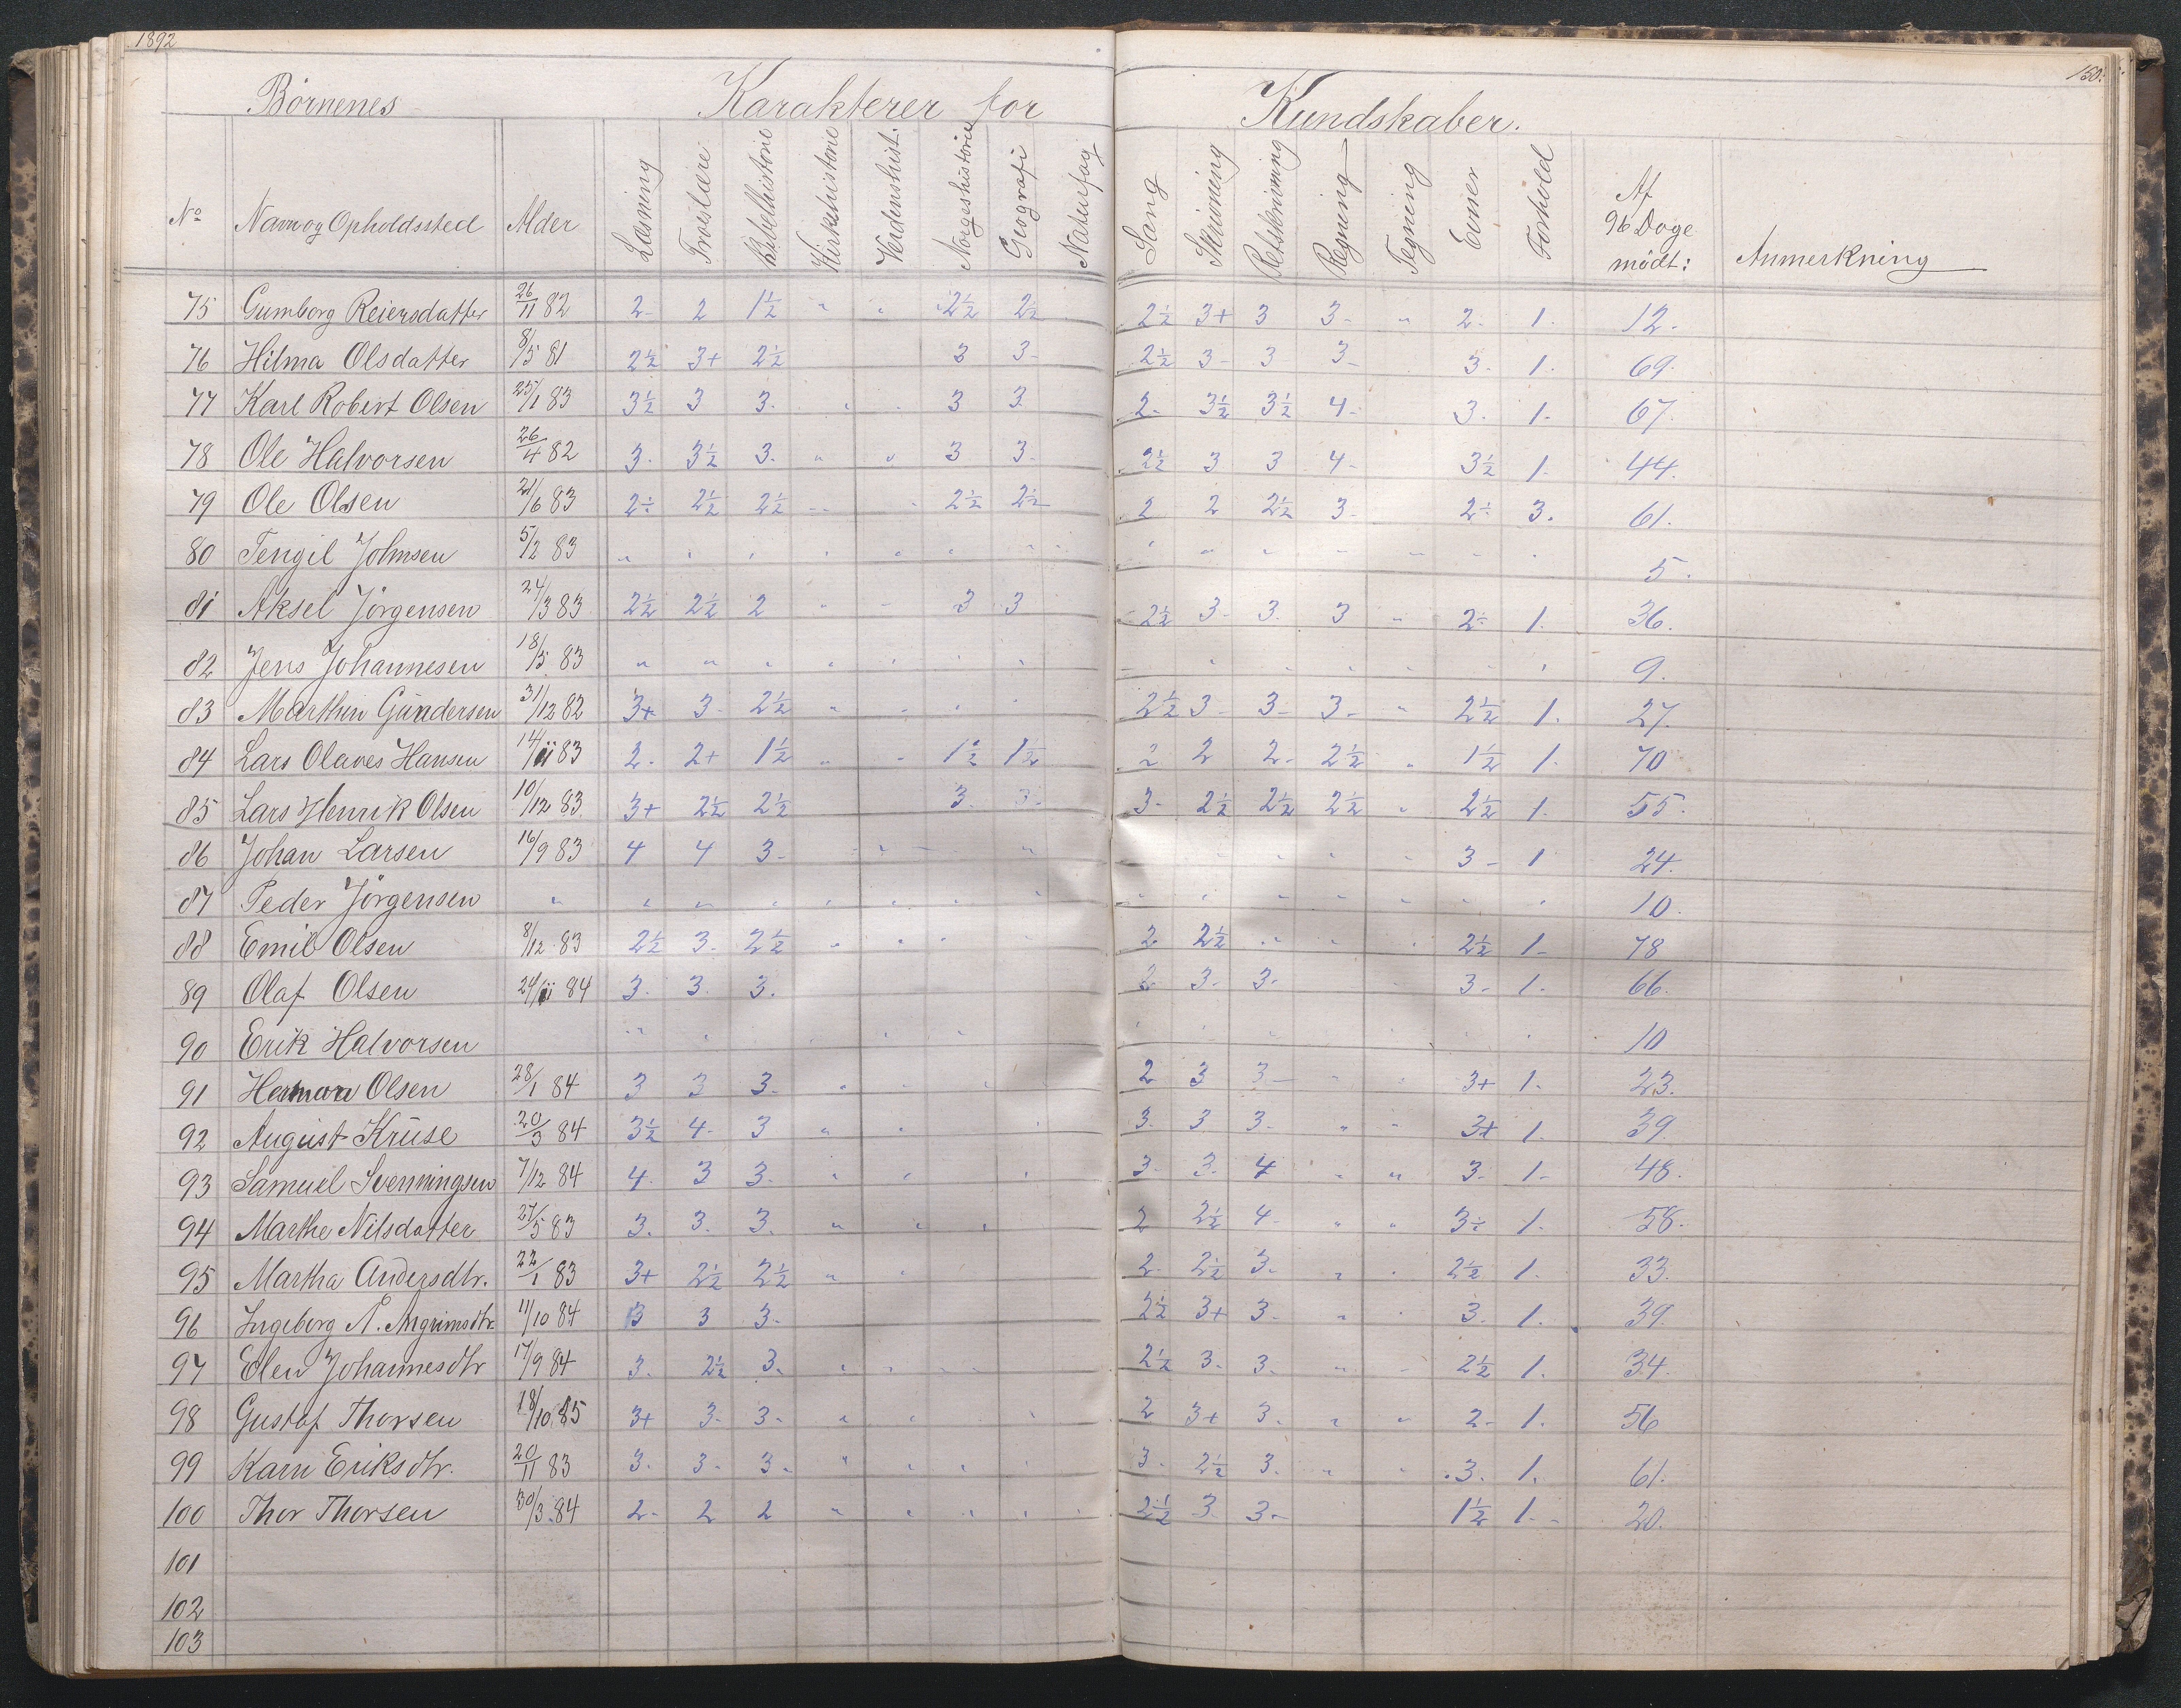 1892
150.
Börnenes Karakterer for Kundskaber.
No Navn og Opholdssted Alder Læsning Troslære Bibelhistorie Kirkehistorie Verdenshist. Norgeshistorie Geografi Naturfag Sang Skrivning Retskrivning Regning Tegning Evner Forhold Af 96 Dage mödt: Anmerkning
75 Gumborg Reiersdatter 26/11 82 2- 2 1½ " " 2½ 2½ 2½ 3+ 3 3- " 2- 1. 12.
76 Hilma Olsdatter 8/5 81 2½ 3+ 2½ 3 3- 2½ 3- 3 3- 3- 1. 69.
77 Karl Robert Olsen 25/1 83 3½ 3 3. " " 3 3. 2- 3½ 3½ 4- 3. 1. 67.
78 Ole Halvorsen 26/4 82 3. 3½ 3. " " 3 3. 2½ 3 3 4- 3½ 1. 44.
79 Ole Olsen 21/6 83 2½ 2½ 2½ " " 2½ 2½ 2 2 2½ 3- 2½ 3. 61.
80 Tengil Johnsen 5/2 83 " " " " " " " " " " " " " " 5.
81 Aksel Jörgensen 24/3 83 2½ 2½ 2 " " 3 3 2½ 3- 3. 3 " 2½ 1. 36.
82 Jens Johannesen 18/5 83 " " " " " " " " " " " " " " 9.
83 Marthin Gundersen 31/12 82 3+ 3- 2½ " " " " 2½ 3- 3- 3- " 2½ 1. 27.
84 Lars Olaves Hansen 14/11 83 2- 2+ 1½ " " 1½ 1½ 2 2 2- 2½ " 1½ 1. 70
85 Lars Henrik Olsen 10/12 83. 3+ 2½ 2½ 3. 3- 3- 2½ 2½ 2½ " 2½ 1. 55.
86 Johan Larsen 16/9 83 4 4 3- " " " " " " " 3- 1 24.
87 Peder Jörgensen " " " " " " " " " " " " " " " 10.
88 Emil Olsen 8/12 83 2½ 3- 2½ " " " 2 2½ " " " 2½ 1- 78
89 Olaf Olsen 24/11 84 3. 3. 3. 2 3- 3- 3- 1. 66.
90 Erik Halvorsen " " " " " " " " " " 10
91 Herman Olsen 28/1 84 3 3 3- " " " 2 3 3- " " 3+ 1. 23.
92 August Kruse 20/3 84 3½ 4- 3 " " " 3. 3 3. " " 3+ 1. 39.
93 Samuel Svenningsen 7/12 84 4. 3 3. " " " 3- 3. 4 " " 3. 1- 48.
94 Marthe Nilsdatter 27/5 83 3. 3. 3. " " " 2 2½ 4- " " 3½ 1. 58.
95 Martha Andersdtr. 22/1 83 3+ 2½ 2½ " " 2- 2½ 3. " " 2½ 1. 33.
96 Ingeborg A. Angrimsdtr. 11/10 84 3 3 3- 2½ 3+ 3- " " 3. 1. 39.
97 Elen Johannesdtr 17/9 84 3. 2½ 3. " " " " 2½ 3- 3- " " 2½ 1. 34.
98 Gustaf Thorsen 18/10 85 3+ 3- 3- " " " 2 3+ 3- " " 2- 1. 56
99 Karn Eriksdtr. 20/11 83 3. 3- 3- " " " " 3- 2½ 3. " " 3. 1. 61.
100 Thor Thorsen 30/3 84 2- 2 2 " " " " " 2½ 3 3- 1½ 1- 20.
101
102
103